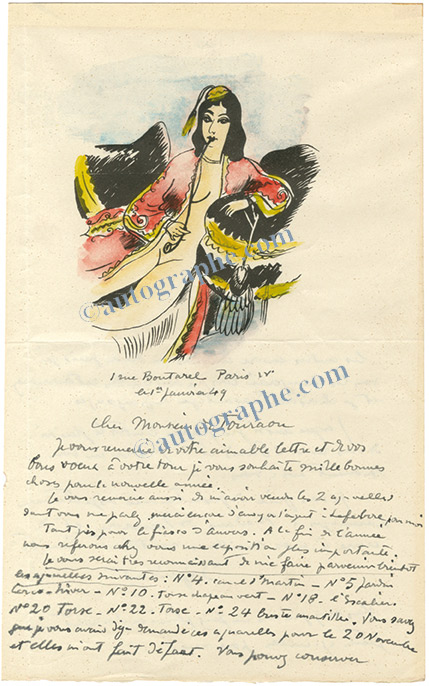 ©autographe.com
©autographe.com
1 rue Boutarel Paris IVe
le 1er Janvier 49
©autographe.com
Cher Monsieur
Je vous remercie de votre aimable lettre et de vos
bons voeux à votre tour je vous souhaite mille bonnes
choses pour la nouvelle année.
Je vous remercie aussi de m'avoir vendu les 2 aquarelles
dont vous me parlez, merci encore d'envoyer l'argent à Lefebvre pour moi
Tant pis pour le fiasco d'Anvers. A la fin de l'année
nous referons chez vous une exposition plus importante.
Je vous serai très reconnaissant de me faire parvenir bientôt
les aquarelles suivantes : N° 4. canal St Martin - N° 5 Jardin
hiver - N° 10. Torse chapeau vert - N° 18. l'Escalier
N° 20 Torse - N° 22. Torse - N° 24 buste mantille. Vous savez
que je vous avais déjà demandé ces aquarelles pour le 20 Novembre
et elles m'ont fait défaut. Vous pouvez conserver